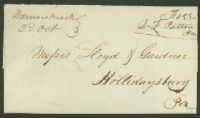 2d Oct
Free
Pm
Messrs Lloyd & Gardner
Hollidaysburg
Pa